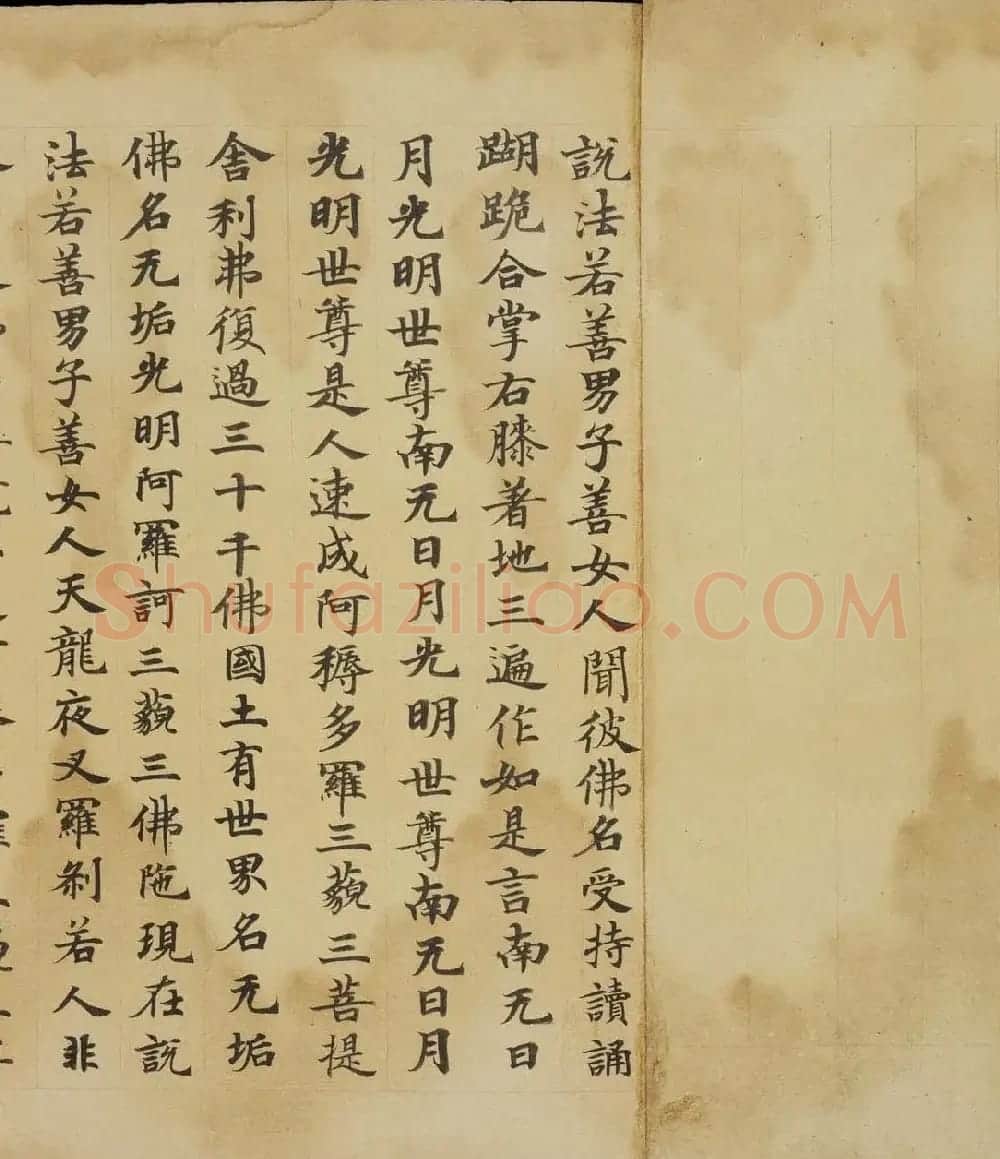 說法若善男子善女人聞彼佛名受持讀誦
䠒跪合掌右膝著地三遍作如是言南无日
月光明世尊南无日月光明世尊南无日月
光明世尊是人速成阿耨多羅三藐三菩提
舍利弗復過三十千佛國土有世界名无垢
佛名无垢光明阿羅訶三藐三佛陁現在說
法若善男子善女人天龍夜叉羅剎若人非
Shufaziliao.COM